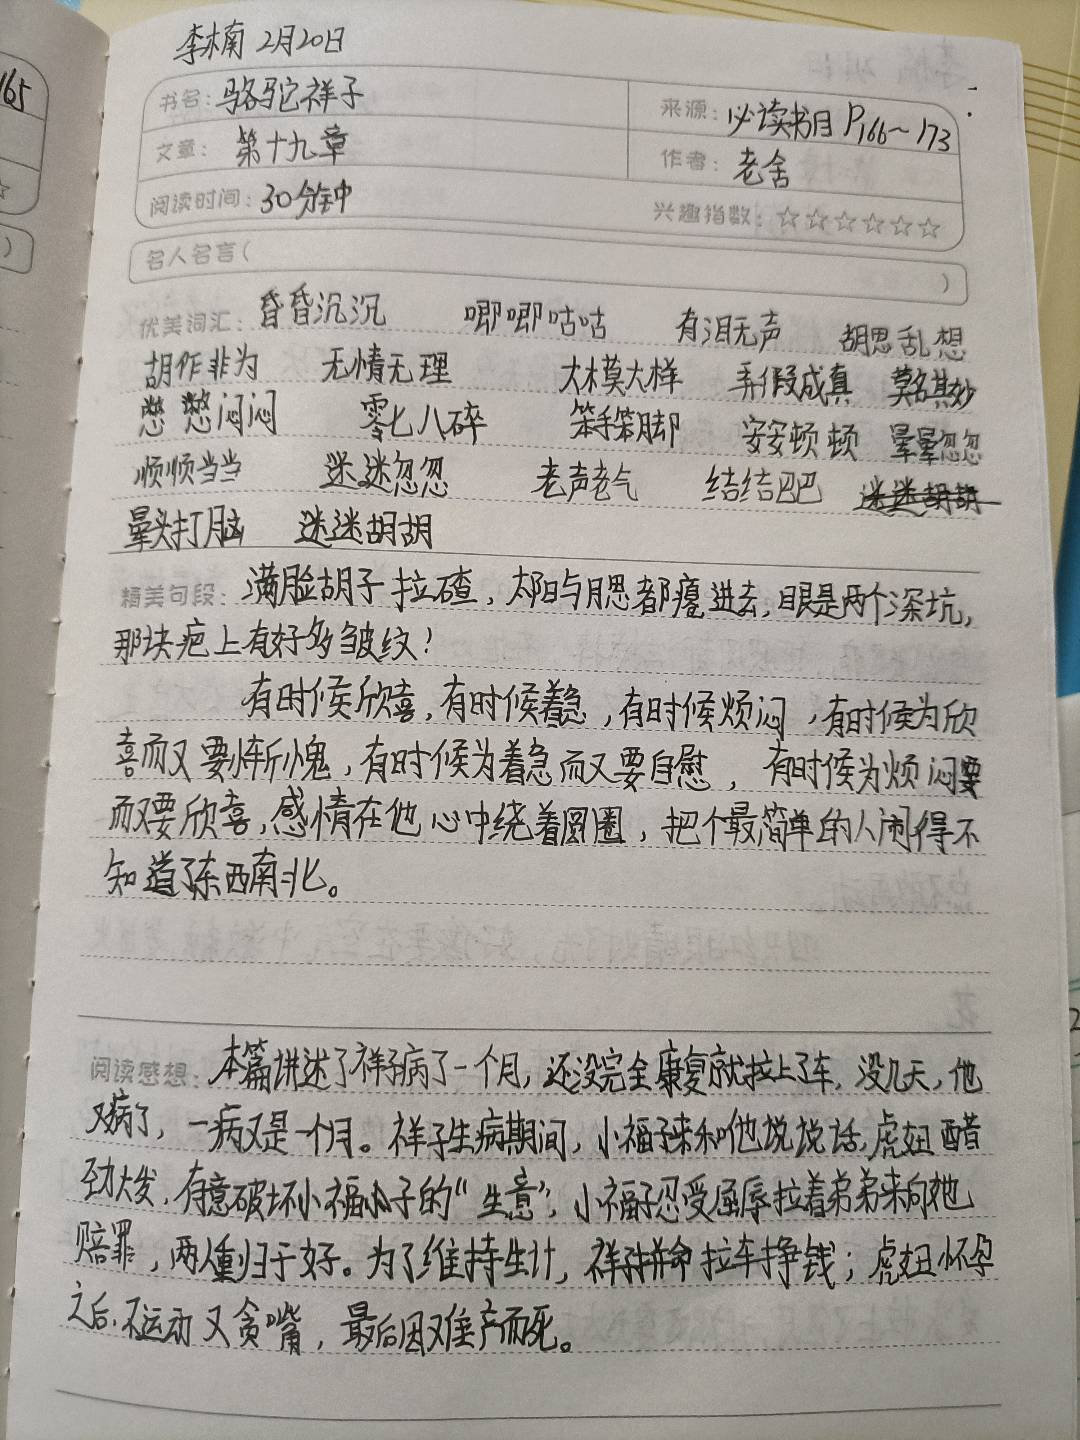 李楠 2月20日
165
书名：骆驼祥子
来源：必读书目 P166～173
文章：第十九章
作者：老舍
阅读时间：30分钟
兴趣指数：☆☆☆☆☆☆
名人名言（ ）
优美词汇：昏昏沉沉 唧唧咕咕 有泪无声 胡思乱想
胡作非为 无情无理 大模大样 弄假成真 莫名其妙
憋憋闷闷 零七八碎 笨手笨脚 安安顿顿 晕晕忽忽
顺顺当当 迷迷忽忽 老声老气 结结巴巴 迷迷胡胡
晕头打脑 迷迷胡胡
精美句段：满脸胡子拉碴，太阳与腮都瘪进去，眼是两个深坑，
那块疤上有好多皱纹！
有时候欣喜，有时候着急，有时候烦闷，有时候为欣
喜而又要惭愧，有时候为着急而又要自慰，有时候为烦闷要
而又要欣喜，感情在他心中绕着圆圈，把个最简单的人闹得不
知道了东西南北。
阅读感想：本篇讲述了祥子病了一个月，还没完全康复就拉上了车，没几天，他
又病了，一病又是一个月。祥子生病期间，小福子来和他说说话，虎妞醋
劲大发，有意破坏小福小子的“生意”，小福子忍受屈辱拉着弟弟来向她
赔罪，两人重归于好。为了维持生计，祥子拼命拉车挣钱；虎妞怀孕
之后，不运动又贪嘴，最后因难产而死。